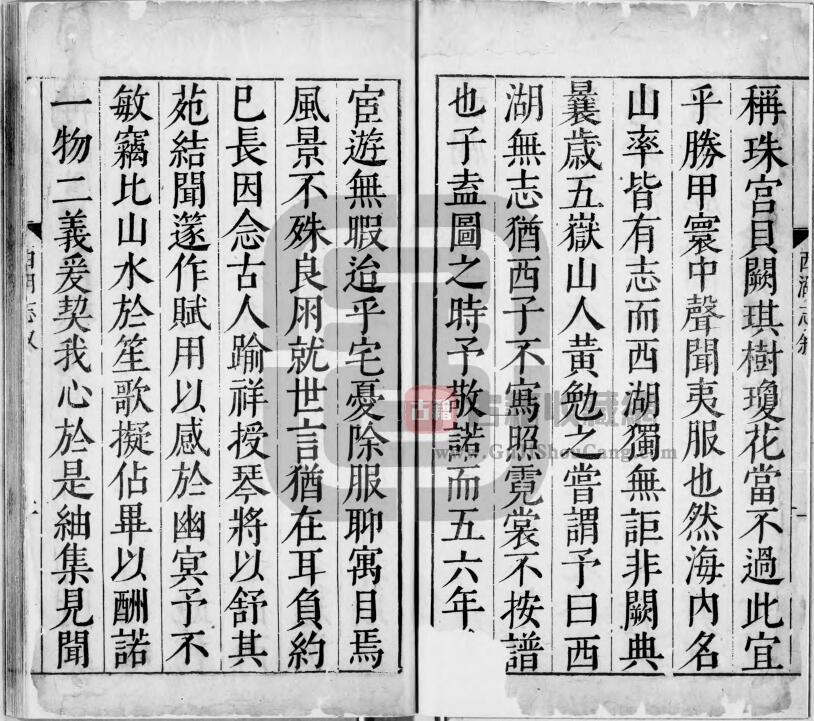 稱珠宮貝闕琪樹瓊花當不過此宜
乎勝甲寰中聲聞夷服也然海內名
山率皆有志而西湖獨無詎非闕典
曩歲五嶽山人黃勉之嘗謂予曰西
湖無志猶西子不寫照霓裳不按譜
也子盍圖之時予敬諾而五六年
宦遊無暇迨乎宅憂除服聊寓目焉
風景不殊良朋就世言猶在耳負約
已長因念古人踰祥授琴將以舒其
菀結聞篴作賦用以感於幽冥予不
敏竊比山水於笙歌擬佔畢以酬諾
一物二義爰契我心於是紬集見聞
西湖志敘
西湖志敘
古籍
www.GujiShouCang.com